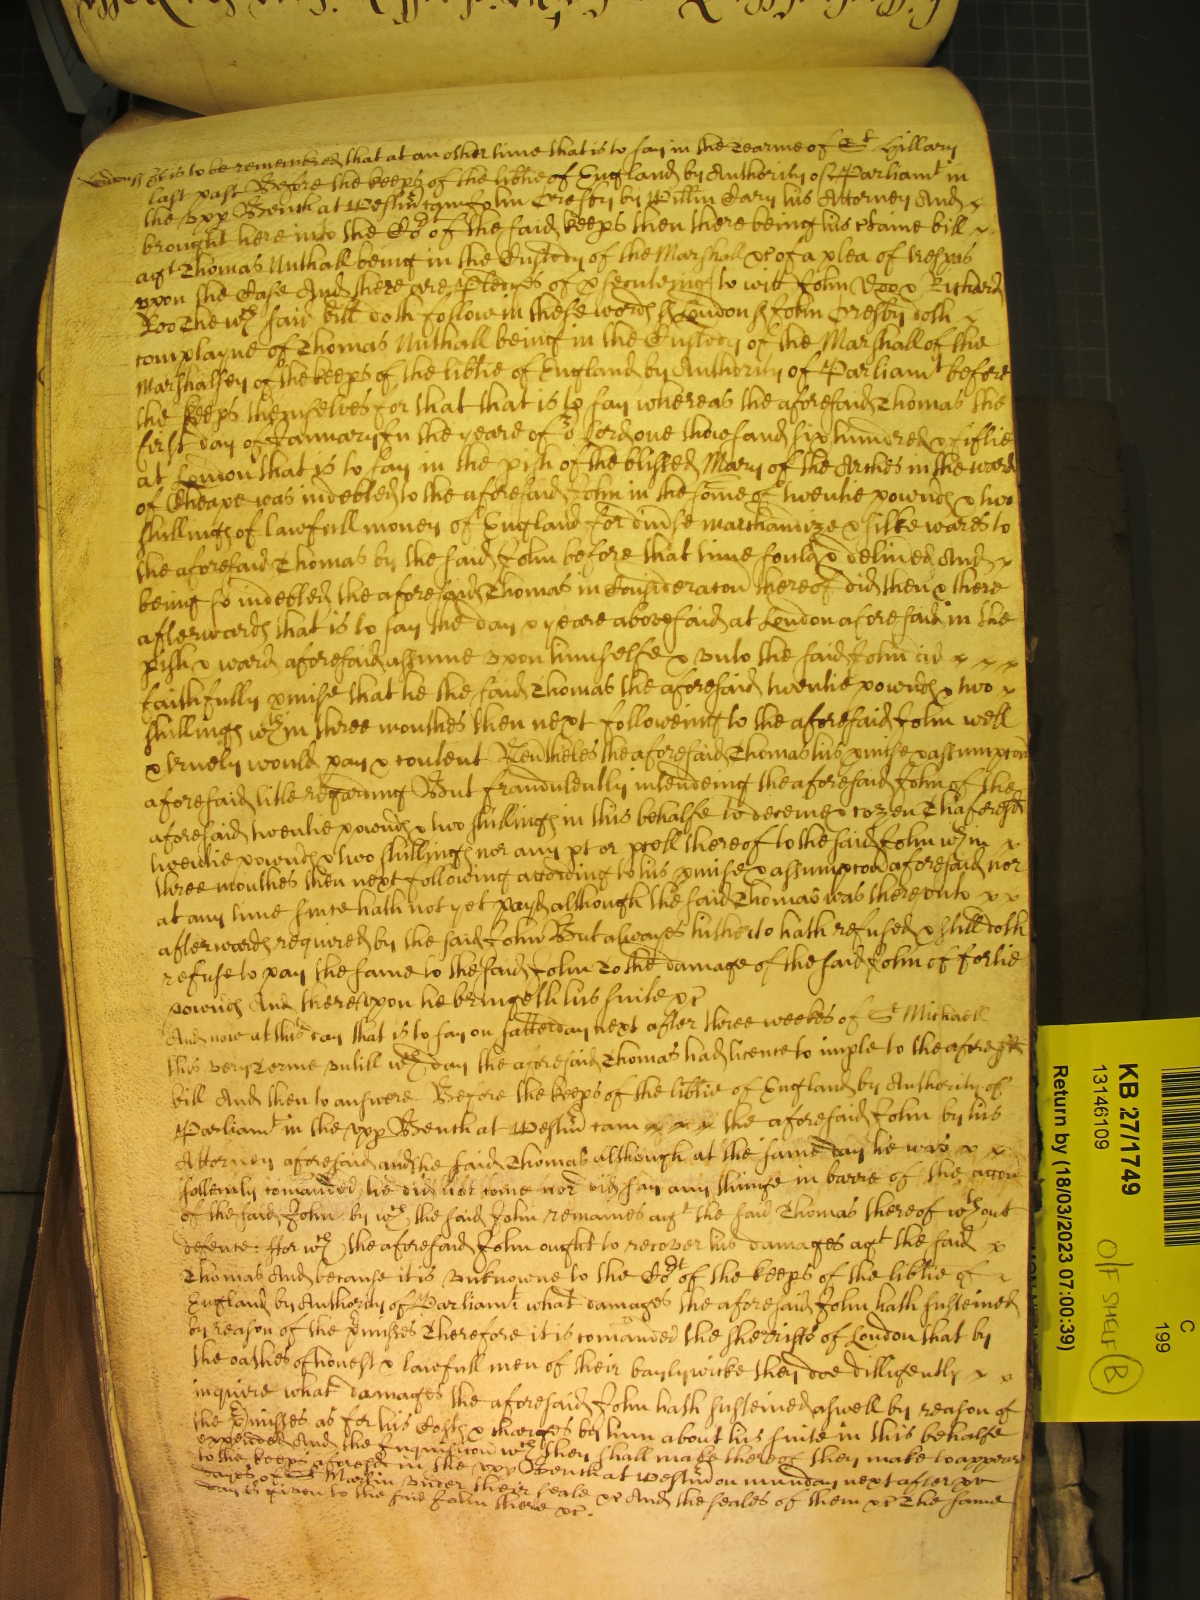 London ss It is to be remembred that at an other time that is to say in the Tearme of St Hillary
last past Before the keeps of the libtie of England by Authority of Parliamt in
the vpp Bench at Westmr came John Cresby by Willm Cary his Attorney And
brought here into the Cort of the said keeps then there being his c'taine bill
agt Thomas Nuthall being in the Custody of the Marshall &c of a plea of trespas
vpon the Case And there are Pledges of p'secuteing to witt John Doo & Richard
Roo The wch said bill doth follow in these words ss London ss John Cresby doth
complayne of Thomas Nuthall being in the Custody of the Marshall of the
Marshalsey of the keeps of the libtie of England by Authority of Parliamt before
the keeps themselves for that that is to say whereas the aforesaid Thomas the
first day of January In the yeare of or Lord one thowsand six hundred & fiftie
at London that is to say in the pish of the blessed Mary of the Arches in the ward
of Cheape was indebted to the aforesaid John in the some of twentie pownds & two
shillings of lawfull money of England for divse marchandize & silke wares to
the aforesaid Thomas by the said John before that time sould & delived And
being so indebted the aforesaid Thomas in Consideracon thereof did then & there
afterwards that is to say the day & yeare abovesaid at London aforesaid in the
pish & ward aforesaid assume vpon himselfe & vnto the said John did
faithfully p'mise that he the said Thomas the aforesaid twentie pownds & two
shillings wthin three monthes then next followeing to the aforesaid John well
& truely would pay & content Nev'theles the aforesaid Thomas his p'mise & assumpcon
aforesaid litle regarding But fraudulently intendeing the aforesaid John of the
aforesaid twentie pownds & two shillings in this behalfe to deceive & cozen Thaforesd
twentie pownds & two shillings nor any pt or pcell thereof to the said John wthin
three monthes then next following according to his p'mise & assumpcon aforesaid nor
at any time since hath not yet payd although the said Thomas was therevnto
afterwards required by the said John But alwayes hitherto hath refused & still doth
refuse to pay the same to the said John To the damage of the said John of fortie
pownds And therevpon he bringeth his suite &c
And now at this day that is to say on Satterday next after three weekes of St Michaell
this very Terme vntill wch day the aforesaid Thomas had licence to imple to the aforesd
bill And then to answere Before the keeps of the libtie of England by Authority of
Parliamt in the vpp Bench at Westmr came the aforesaid John by his
Attorney aforesaid and the said Thomas although at the same day he was
sollemly comanded he did not come nor did say any thinge in barre of the accon
of the said John by wch the said John remaines agt the said Thomas thereof wthout
defence: ffor wch the aforesaid John ought to recover his damages agt the said
Thomas And because it is vnknowne to the Cort of the keeps of the libtie of
England by Authority of Parliamt what damages the aforesaid John hath susteined
by reason of the p'misses Therefore it is comanded the sherriffs of London that by
the oathes of honest & lawfull men of their baylywicke they doe dilligently
inquire what damages the aforesaid John hath susteined aswell by reason of
the p'misses as for his Costs & charges by him about his suite in this behalfe
expended And the Inquisicon wch they shall make thereof they make to appear
to the keeps aforesd in the vpp Bench at Westmr on munday next after xv
dayes of St Martin vnder their seale &c And the seales of them &c The same
day is given to the said John there &c.
KB 27/1749
13146109
Return by (18/03/2023 07:00:39)
C
199
O/F SHELF B